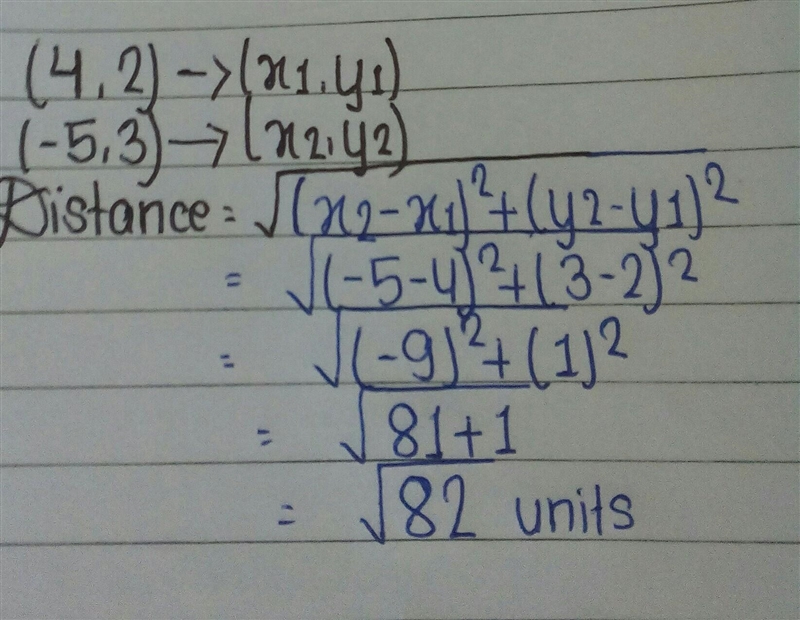 (4,2)->(x1,y1)
(-5,3)->(x2,y2)
Distance=√(x2-x1)²+(y2-y1)²
= √(-5-4)²+(3-2)²
= √(-9)²+(1)²
= √81+1
= √82 units